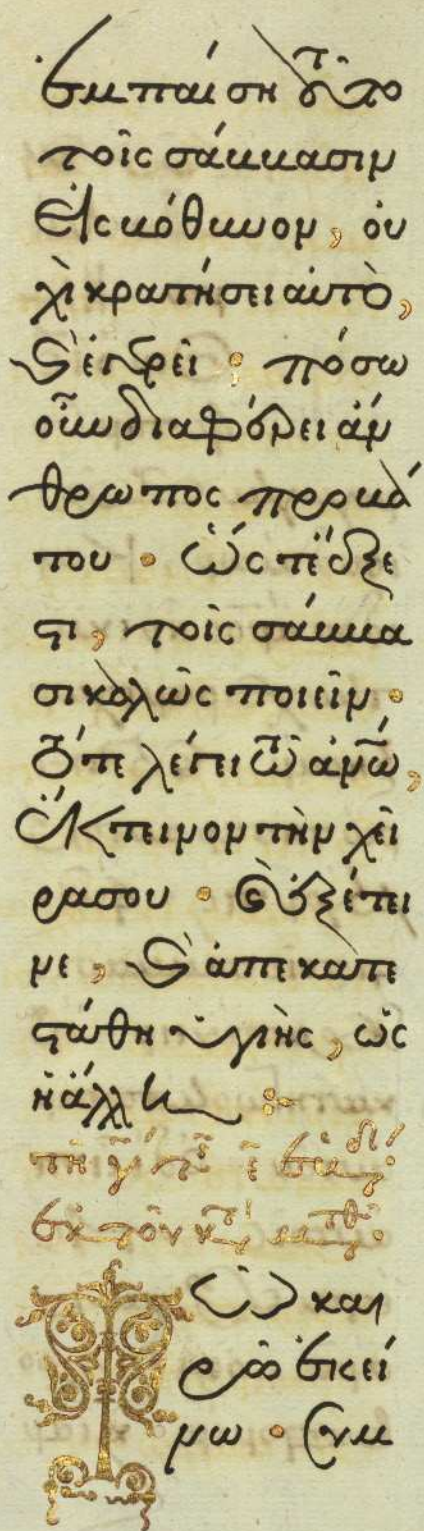 ἐμπέσῃ τοῦτο
τοῖς σάββασιν
εἰς βόθυνον, οὐ
χὶ κρατήσει αὐτὸ,
καὶ ἐγερεῖ; πόσω
οὖν διαφέρει ἄν
θρωπος προβά
του· ὥστε ἔξε
στι, τοῖς σάββα
σι καλῶς ποιεῖν·
τότε λέγει τῶ ἀνθρώπω,
ἔκτεινον τὴν χεῖ
ρα σου· καὶ ἐξέτει
νε, καὶ ἀπεκατε
στάθη ὑγιὴς, ὡς
ἡ ἄλλη
τῇ γ τῆς ε ἑβδ
ἐκ τοῦ κατὰ ματθ
Τῶ και
ρῶ ἐκεί
νω· συμ